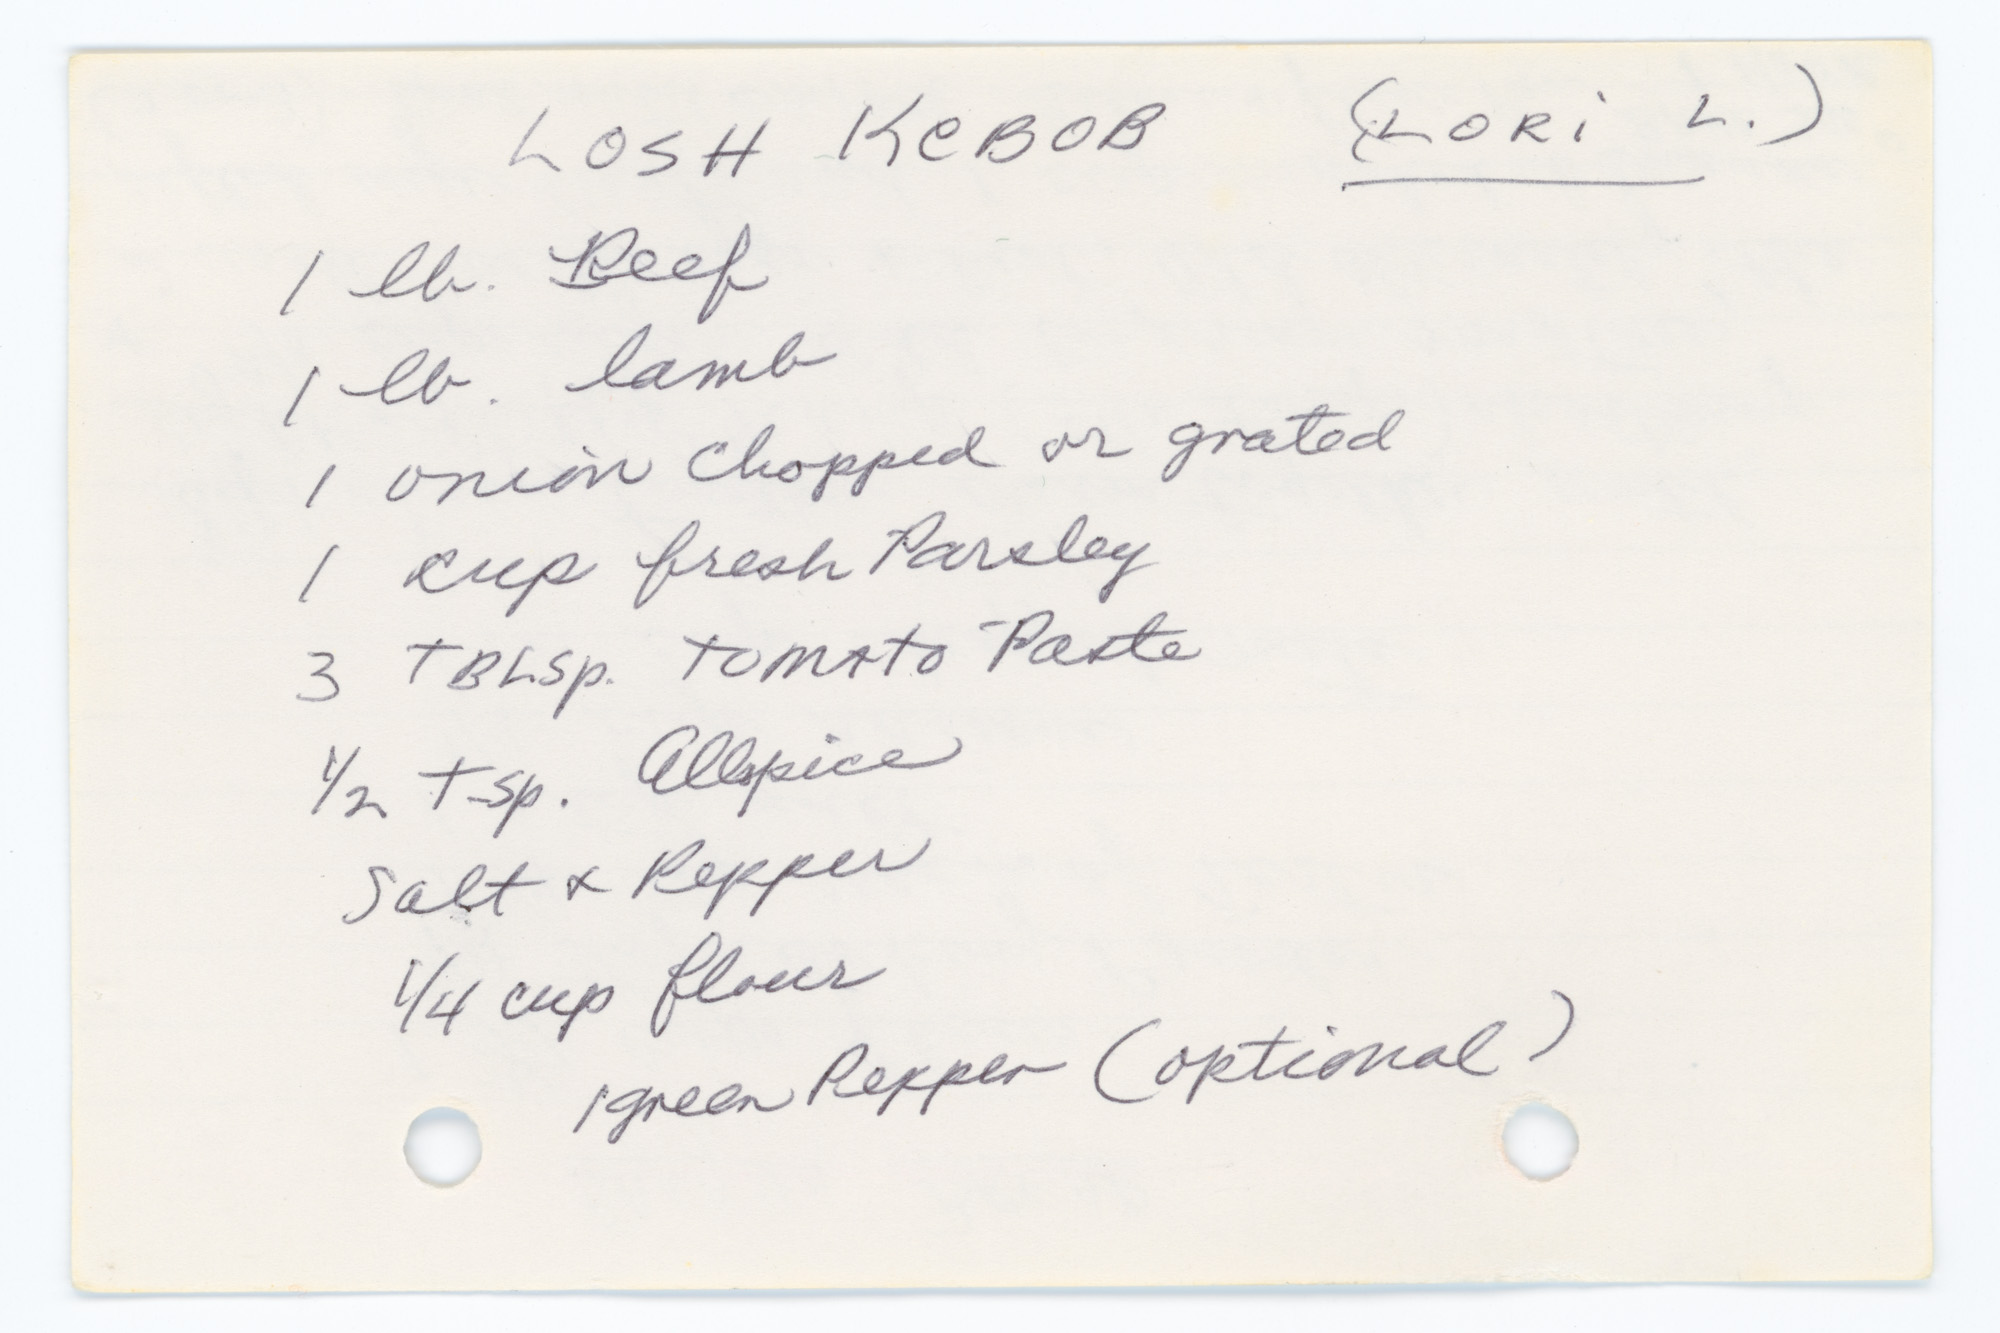 LOSH KEBOB (LORi L.)
1 lb. Beef
1 lb. lamb
1 onion chopped or grated
1 cup fresh Parsley
3 TBLSp. TOMATO Paste
1/2 Tsp. Allspice
Salt & Pepper
1/4 cup flour
1 green Pepper (optional)